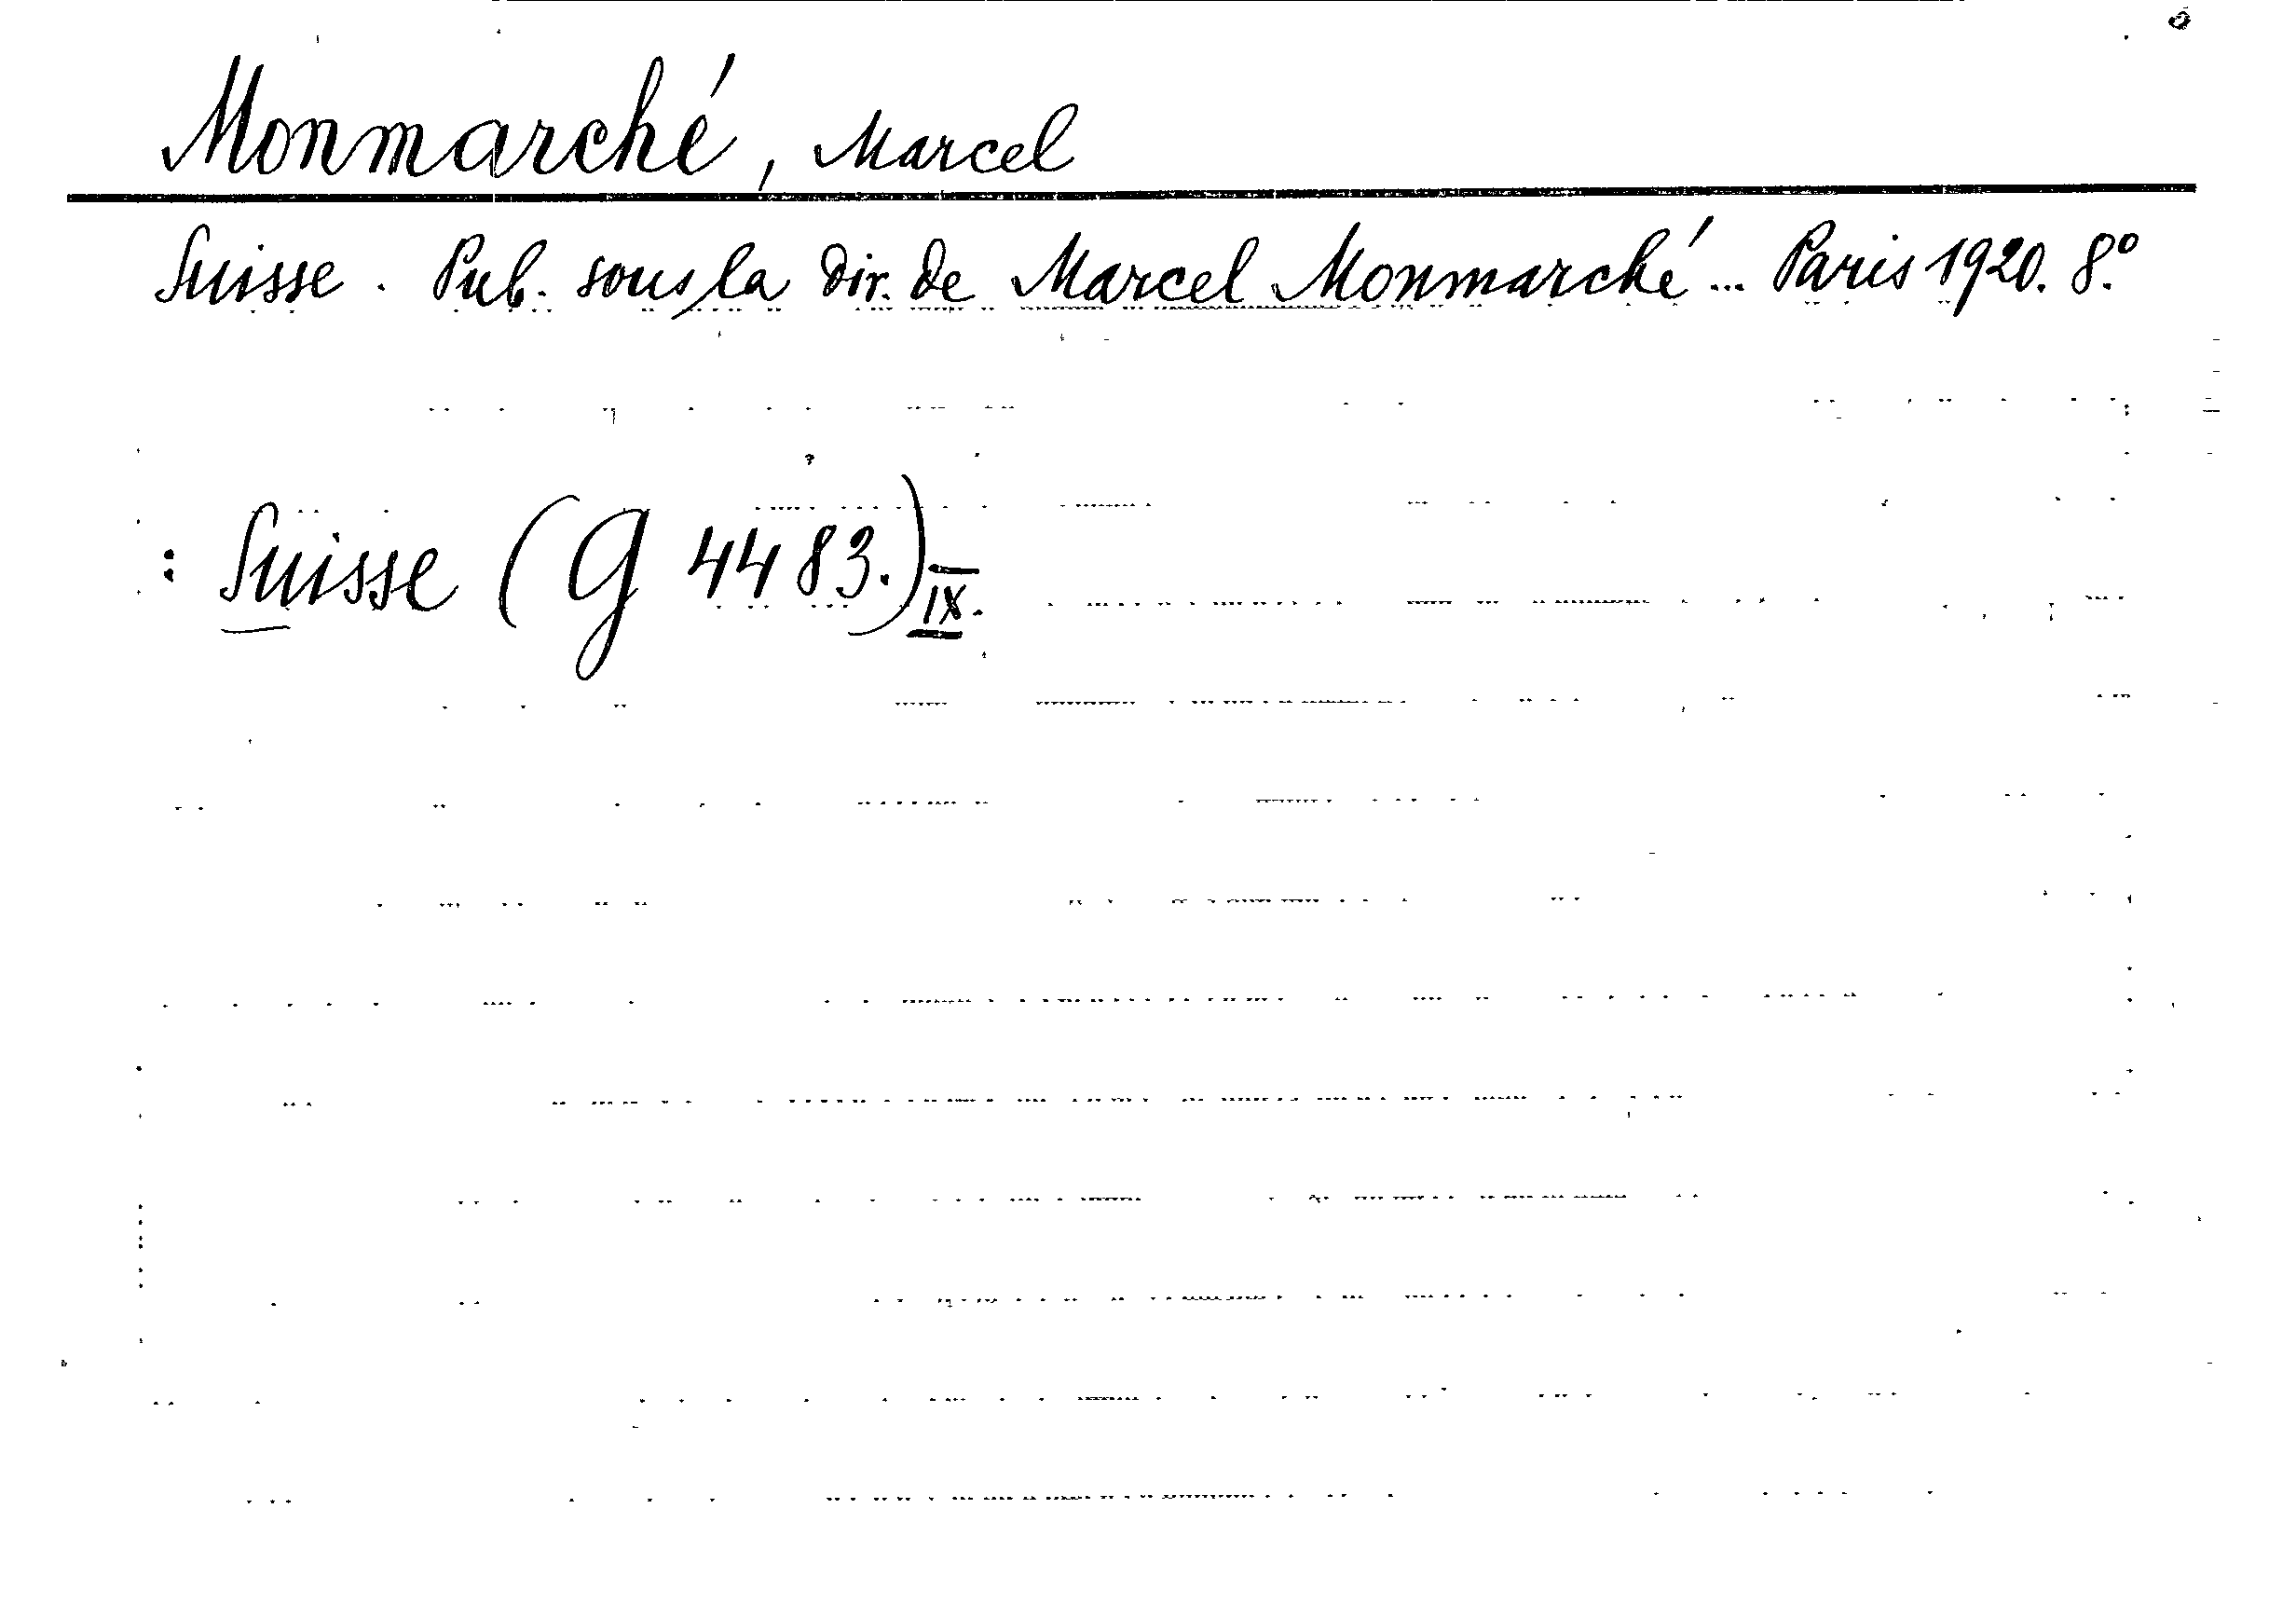 Monmarché, Marcel
Suisse. Pub. sous la dir. de Marcel Monmarché ... Paris 1920. 8.º
: Suisse (G 4483.) IX.